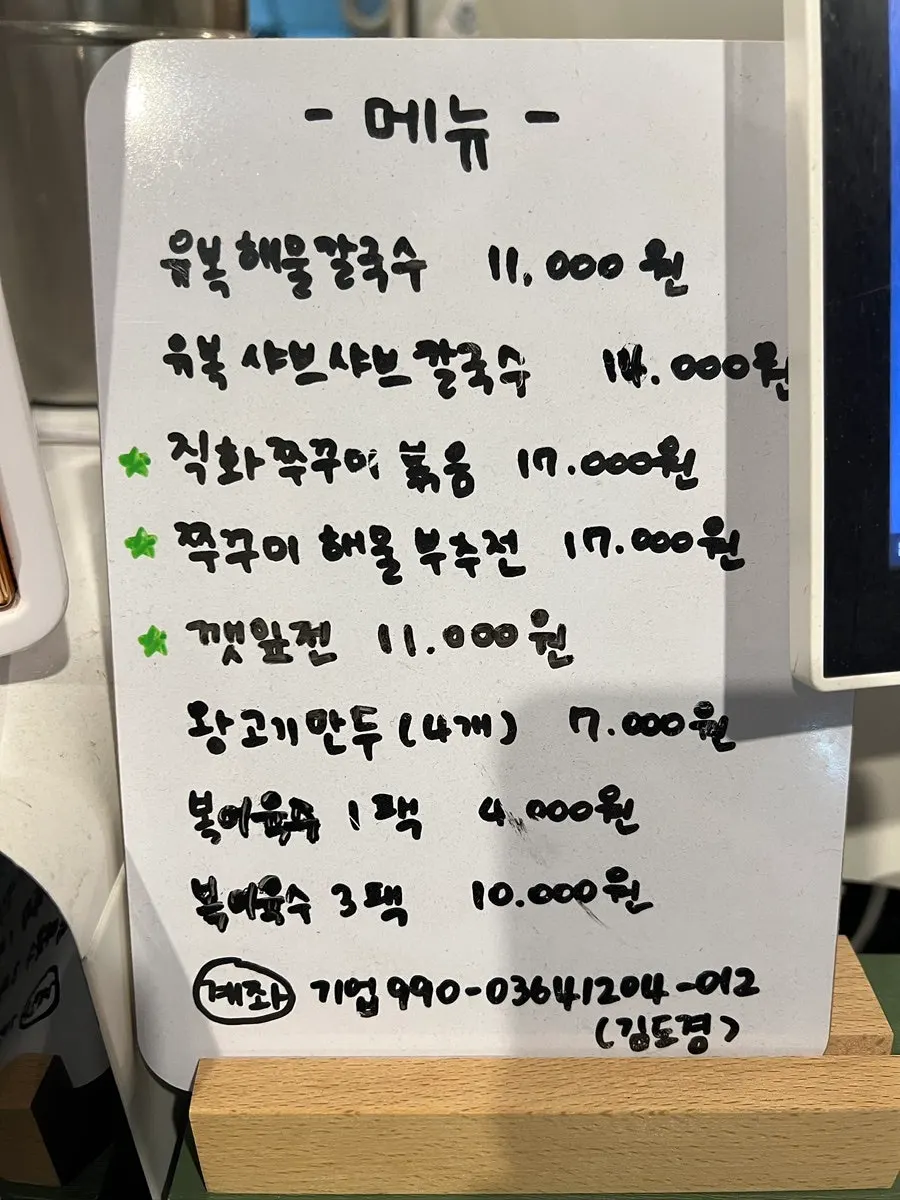 - 메뉴 -
유복해물칼국수 11,000원
유복 샤브샤브칼국수 14.000원
직화쭈꾸미 볶음 17.000원
쭈꾸미 해물 부추전 17.000원
깻잎전 11.000원
왕고기만두(4개) 7.000원
복어육수 1팩 4.000원
복어육수 3팩 10.000원
계좌 기업990-03641204-012
(김도경)